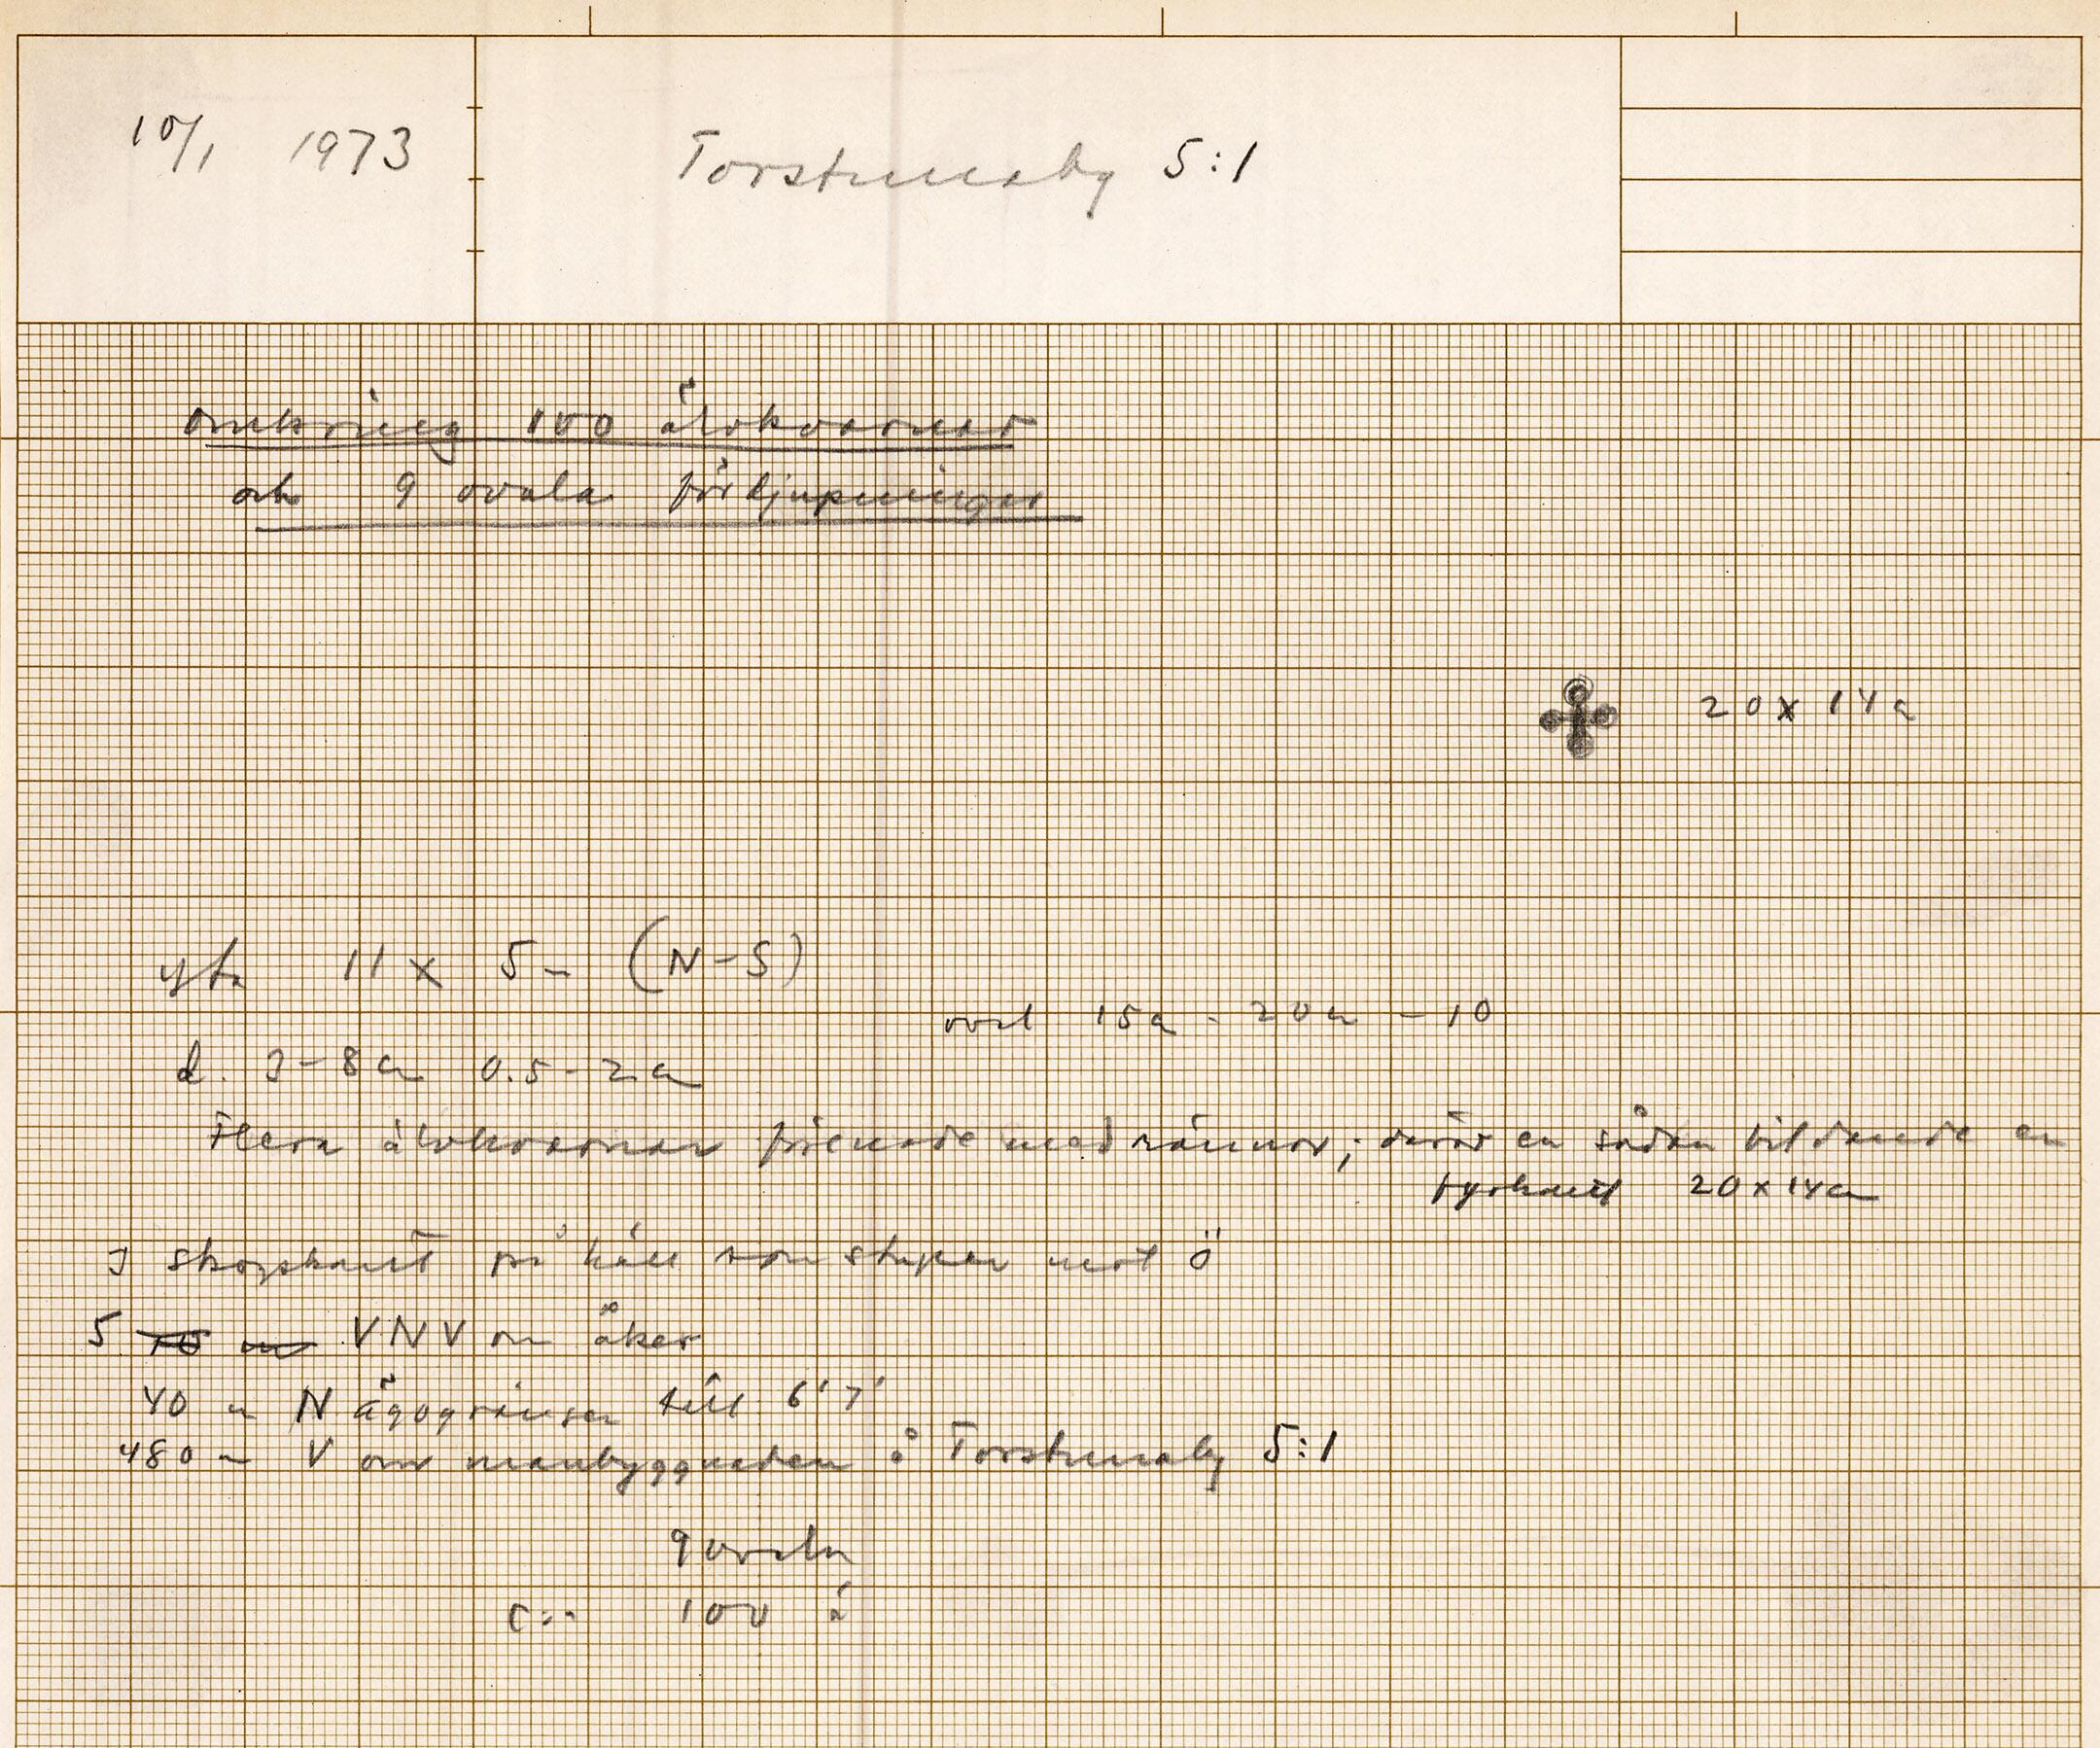 10/1 1973 Torstunaby 5:1
omkring 100 älvkvarnar
och 9 ovala fördjupningar
20x14
yta 11 x 5 m (N-S)
oval 15 - 20 - 10
d. 3-8 cm 0.5-2 cm
Flera älvkvarnar förenade med rännor; därav en sådan bildande en
20x14 cm
I skogskant på häll som stupar mot Ö
5 VNV om åker
40 m N ägogränsen till 6' 7'
480 m V om manbyggnaden å Torstunaby 5:1
9 ovala
c:a 100 ä